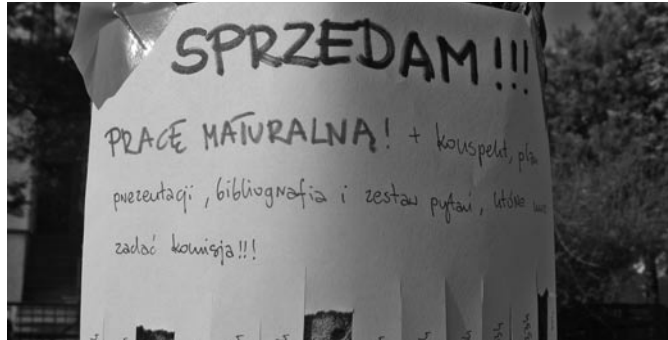 SPRZEDAM!!!
PRACĘ MATURALNĄ! + konspekt, plan
prezentacji, bibliografia i zestaw pytań, które może
zadać komisja!!!